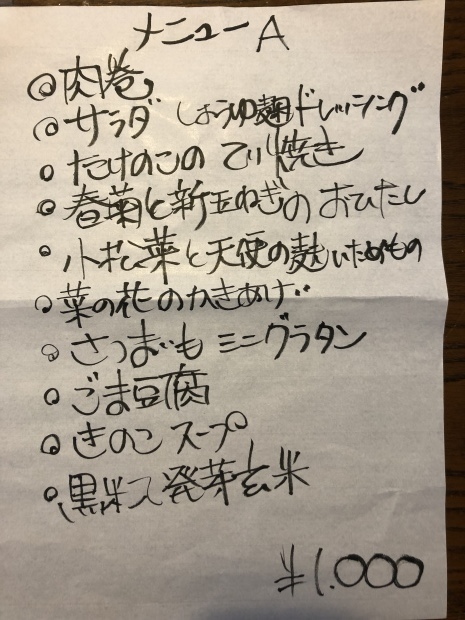 メニューA
肉巻
サラダ しょうゆ麹ドレッシング
たけのこの てり焼き
春菊と新玉ねぎの おひたし
小松菜と天使の麩いためもの
菜の花のかきあげ
さつまいも ミニグラタン
ごま豆腐
きのこスープ
黒米入発芽玄米
¥1.000